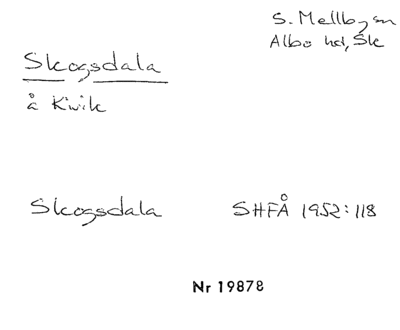 S. Mellby sn
Albo hd, Sk
Skogsdala
å Kivik
Skogsdala SHFÅ 1952:118
Nr 19878